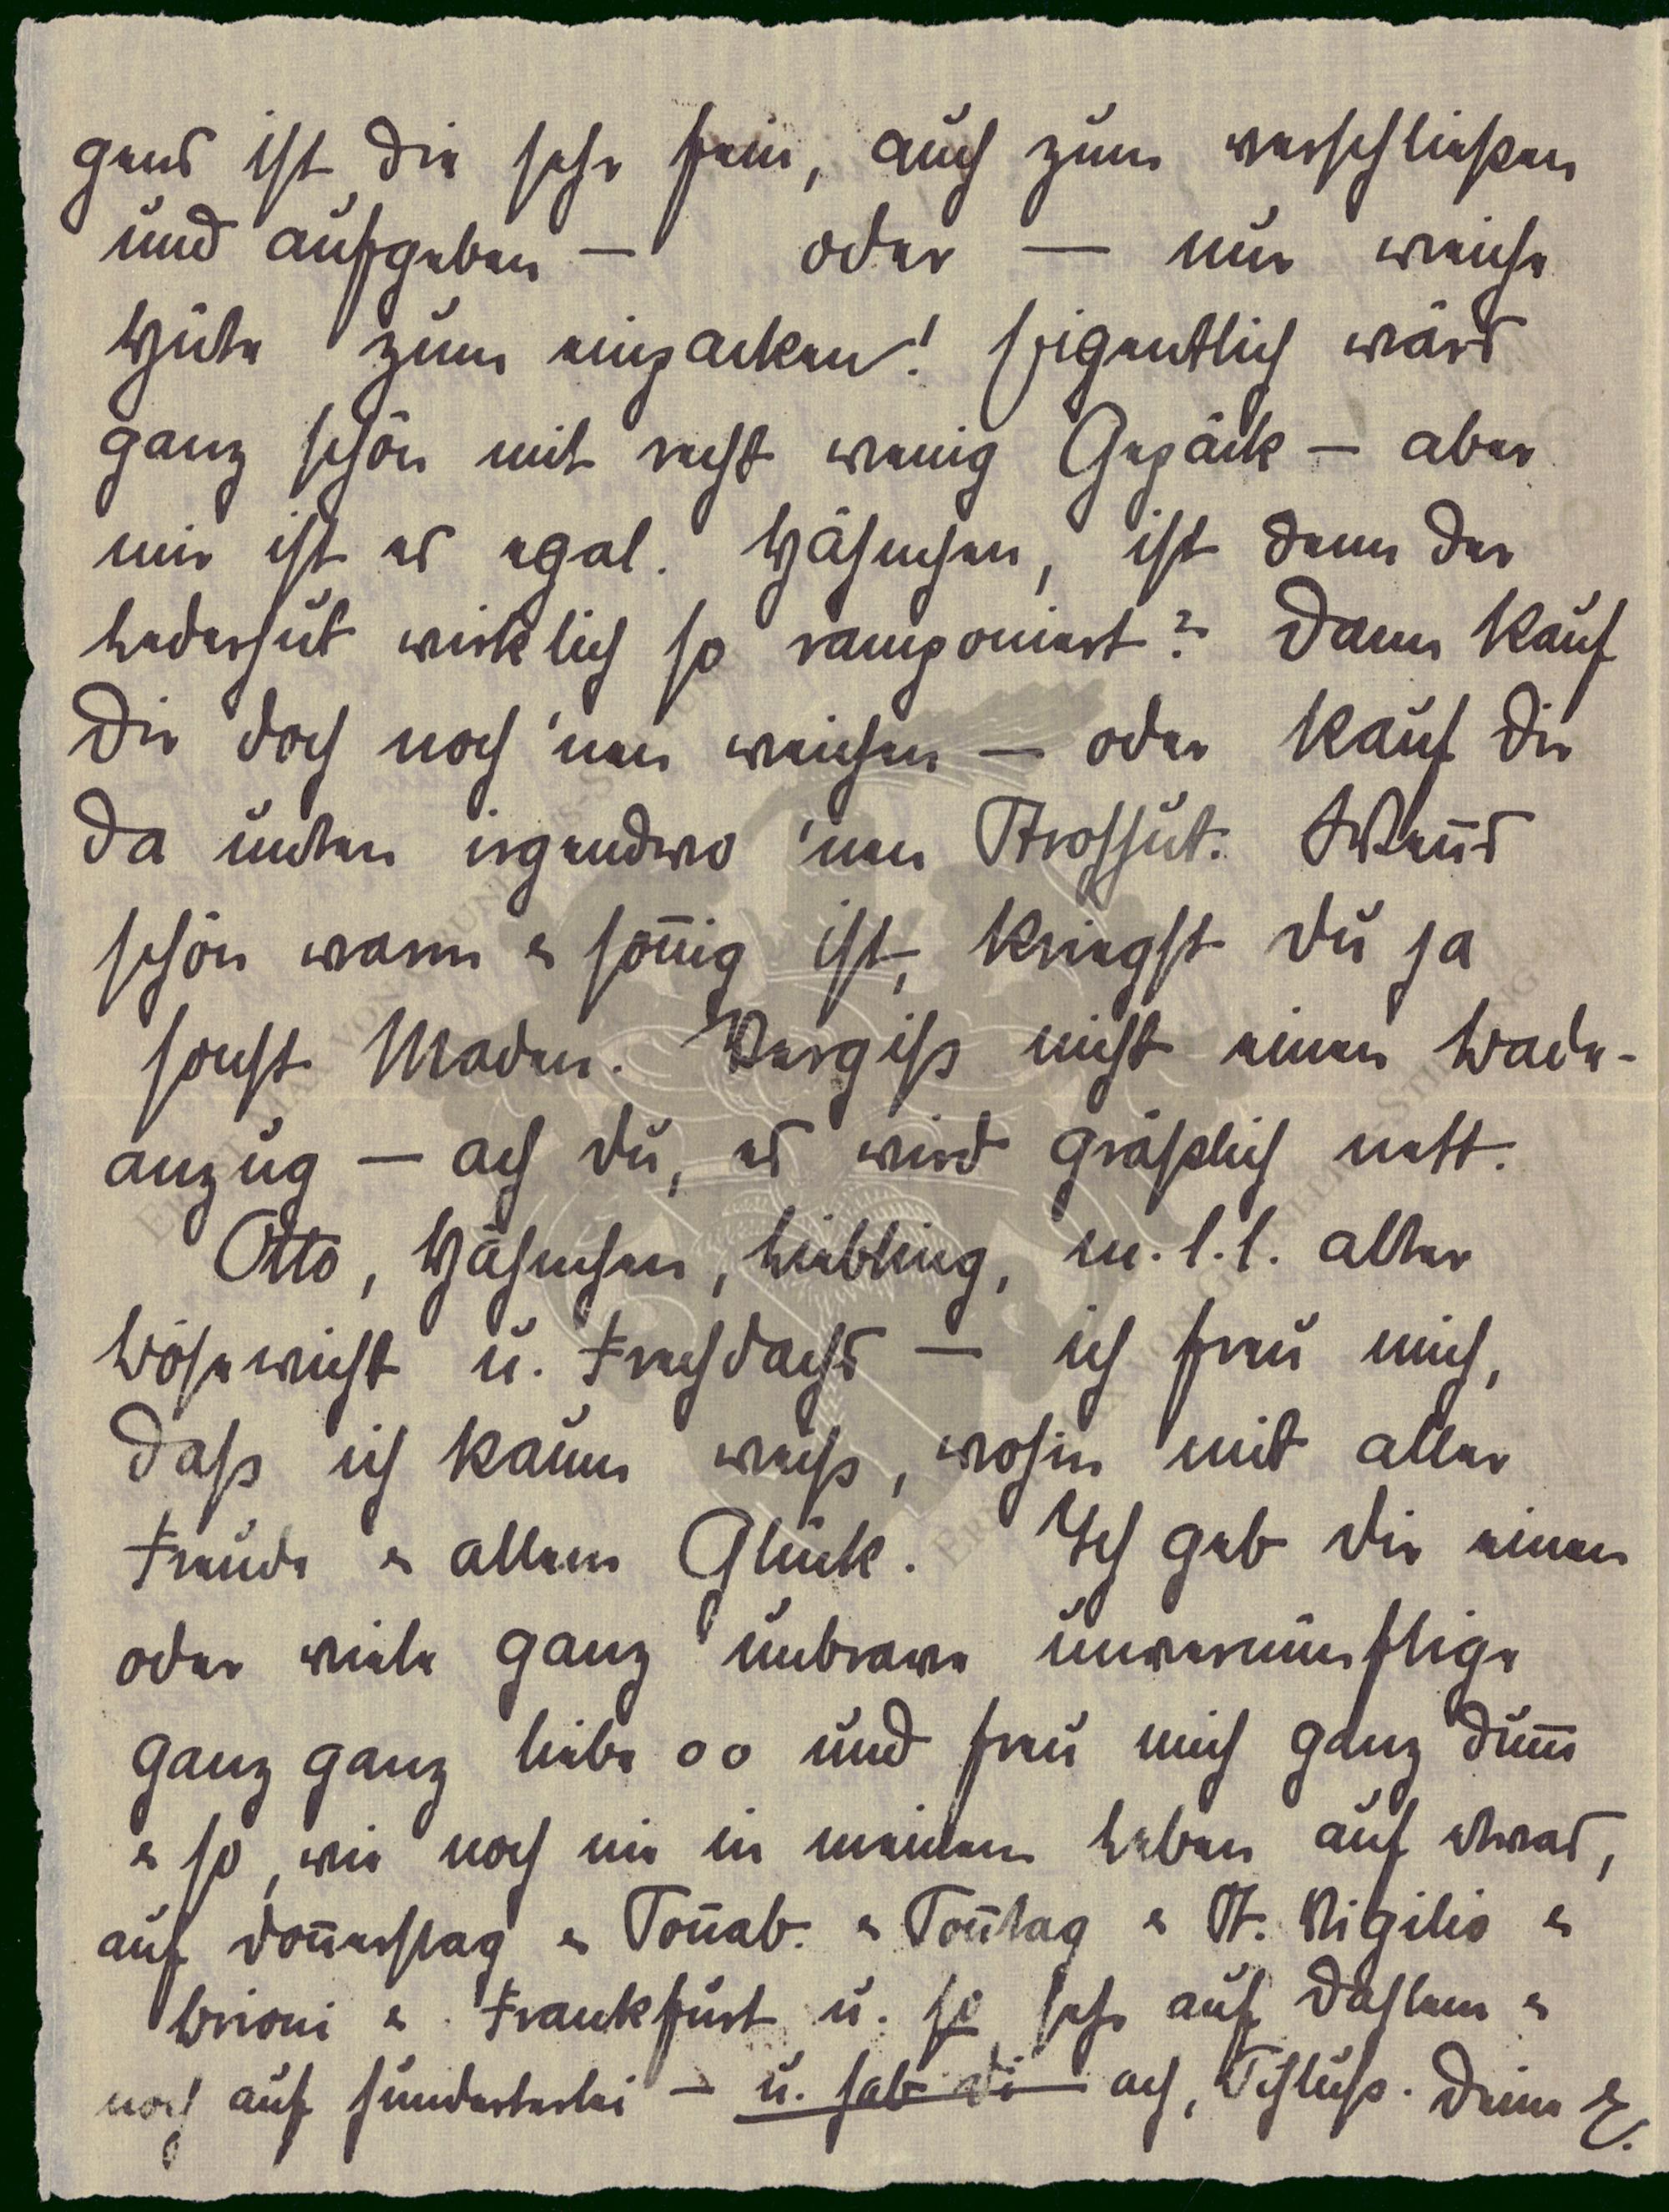 gens ist die sehr fein, auch zum verschließen
und aufgeben — oder — nur weiche
Hüte zum einpacken! Eigentlich wärs
ganz schön mit recht wenig Gepäck — aber
mir ist es egal. Hähnchen, ist denn der
Lederhut wirklich so ramponiert? Dann kauf
Dir doch noch 'nen weichen — oder kauf Dir
da unten irgendwo 'nen Strohhut. Wenn̄s
schön warm & son̄ig ist, kriegst Du ja
sonst Maden. Vergiss nicht einen Bade-
anzug — ach Du, es wird gräßlich nett.
Otto, Hähnchen, Liebling, m. l. l. alter
Bösewicht u. Frechdachs — ich freu mich,
daß ich kaum weiss, wohin mit aller
Freude & allem Glück. Ich geb Dir einen
oder viele ganz unbrave unvernünftige
ganz ganz liebe oo und freu mich ganz dum̄
& so, wie noch nie in meinem Leben auf etwas,
auf Don̄erstag & Son̄ab. & Son̄tag & St. Vigilio &
Brioni & Frankfurt u. so sehr auf Dahlem &
noch auf hunderterlei — u. hab di ach, Schluss. Deine E.